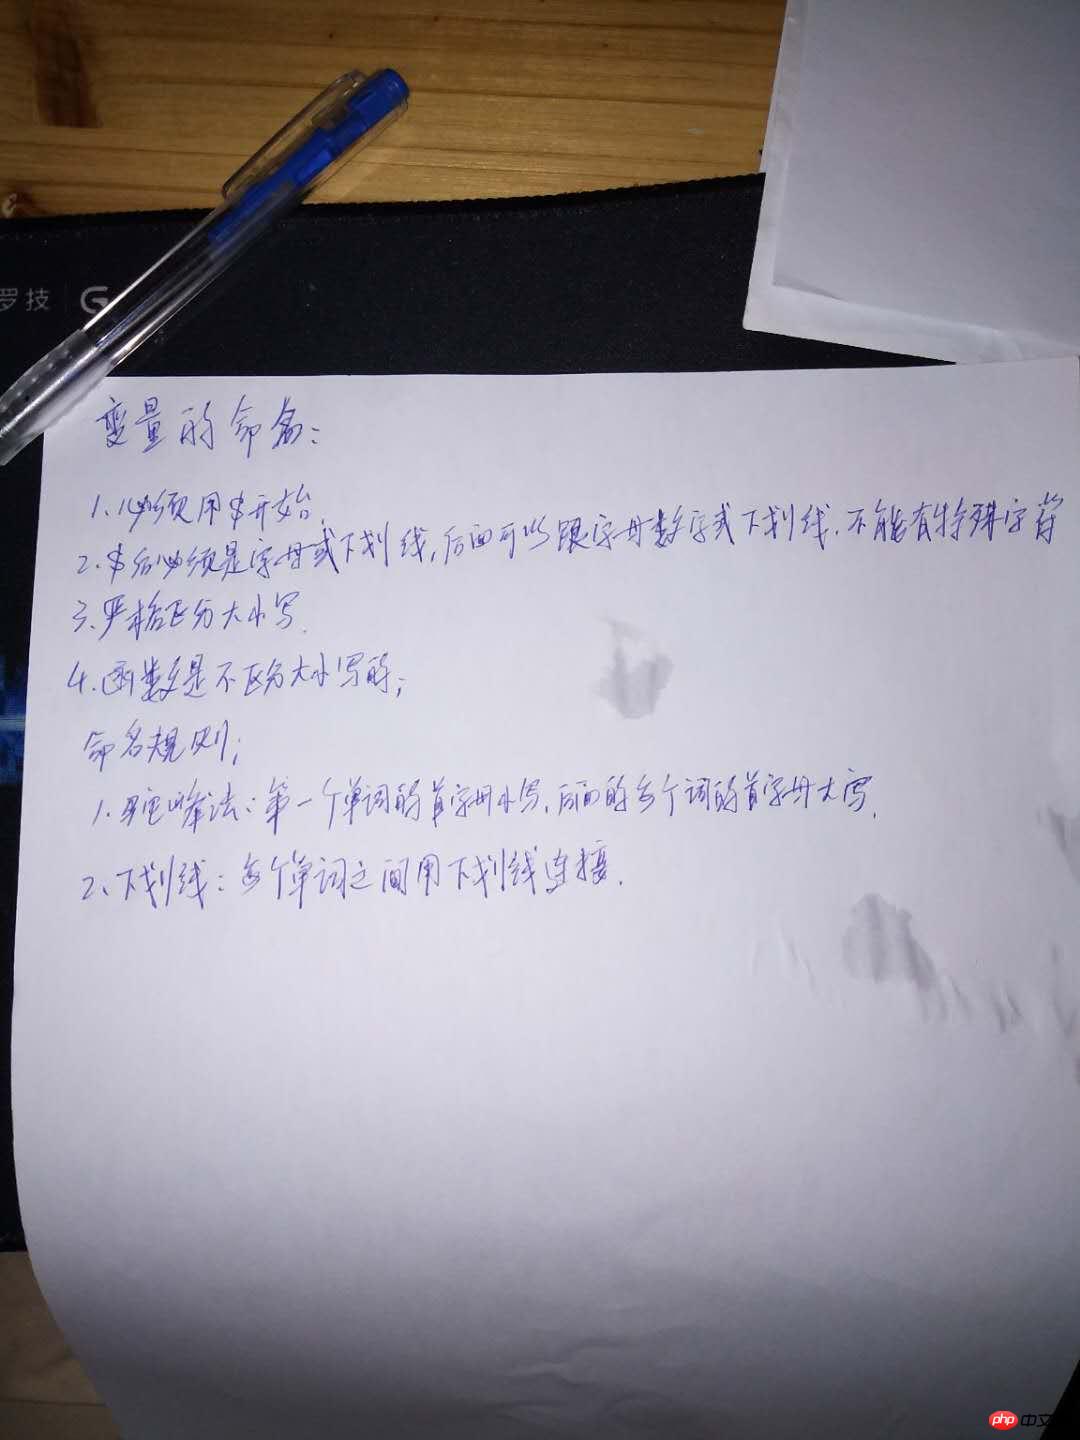 罗技 G
变量的命名：
1.必须用$开始.
2.$后必须是字母或下划线,后面可以跟字母数字或下划线.不能有特殊字符
3.严格区分大小写.
4.函数是不区分大小写的;
命名规则;
1.驼峰法:第一个单词的首字母小写,后面的每个词的首字母大写.
2.下划线:每个单词之间用下划线连接.
php 中文